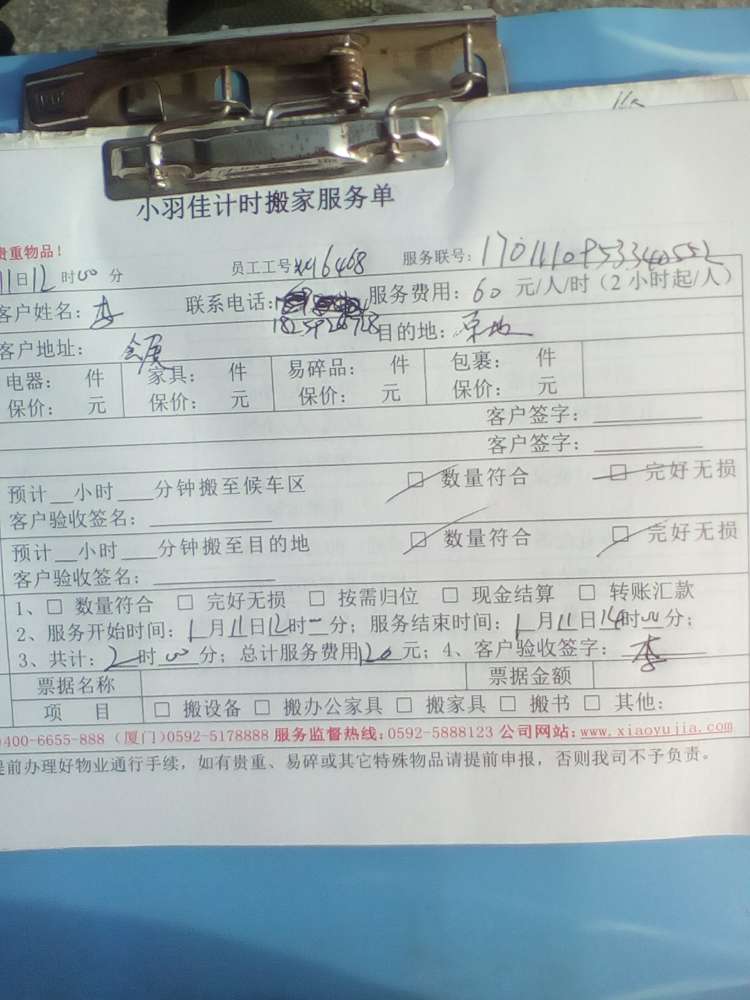 小羽佳计时搬家服务单
贵重物品!
11日12时00分 员工工号xy16468 服务联号:
客户姓名:李 联系电话: 服务费用:60元/人/时(2小时起/人)
客户地址:会展 目的地:
电器: 件 家具: 件 易碎品: 件 包裹: 件
保价: 元 保价: 元 保价: 元 保价: 元
客户签字:
客户签字:
预计__小时___分钟搬至候车区 □ 数量符合 □ 完好无损
客户验收签名:
预计__小时___分钟搬至目的地 □ 数量符合 □ 完好无损
客户验收签名:
1、□ 数量符合 □ 完好无损 □ 按需归位 □ 现金结算 □ 转账汇款
2、服务开始时间:1月11日12时00分;服务结束时间:1月11日14时00分;
3、共计:2时00分;总计服务费用120元;4、客户验收签字:李
票据名称 票据金额
项 目 □ 搬设备 □ 搬办公家具 □ 搬家具 □ 搬书 □ 其他:
400-6655-888 (厦门)0592-5178888 服务监督热线:0592-5888123 公司网站:www.xiaoyujia.com
前办理好物业通行手续,如有贵重、易碎或其它特殊物品请提前申报,否则我司不予负责。